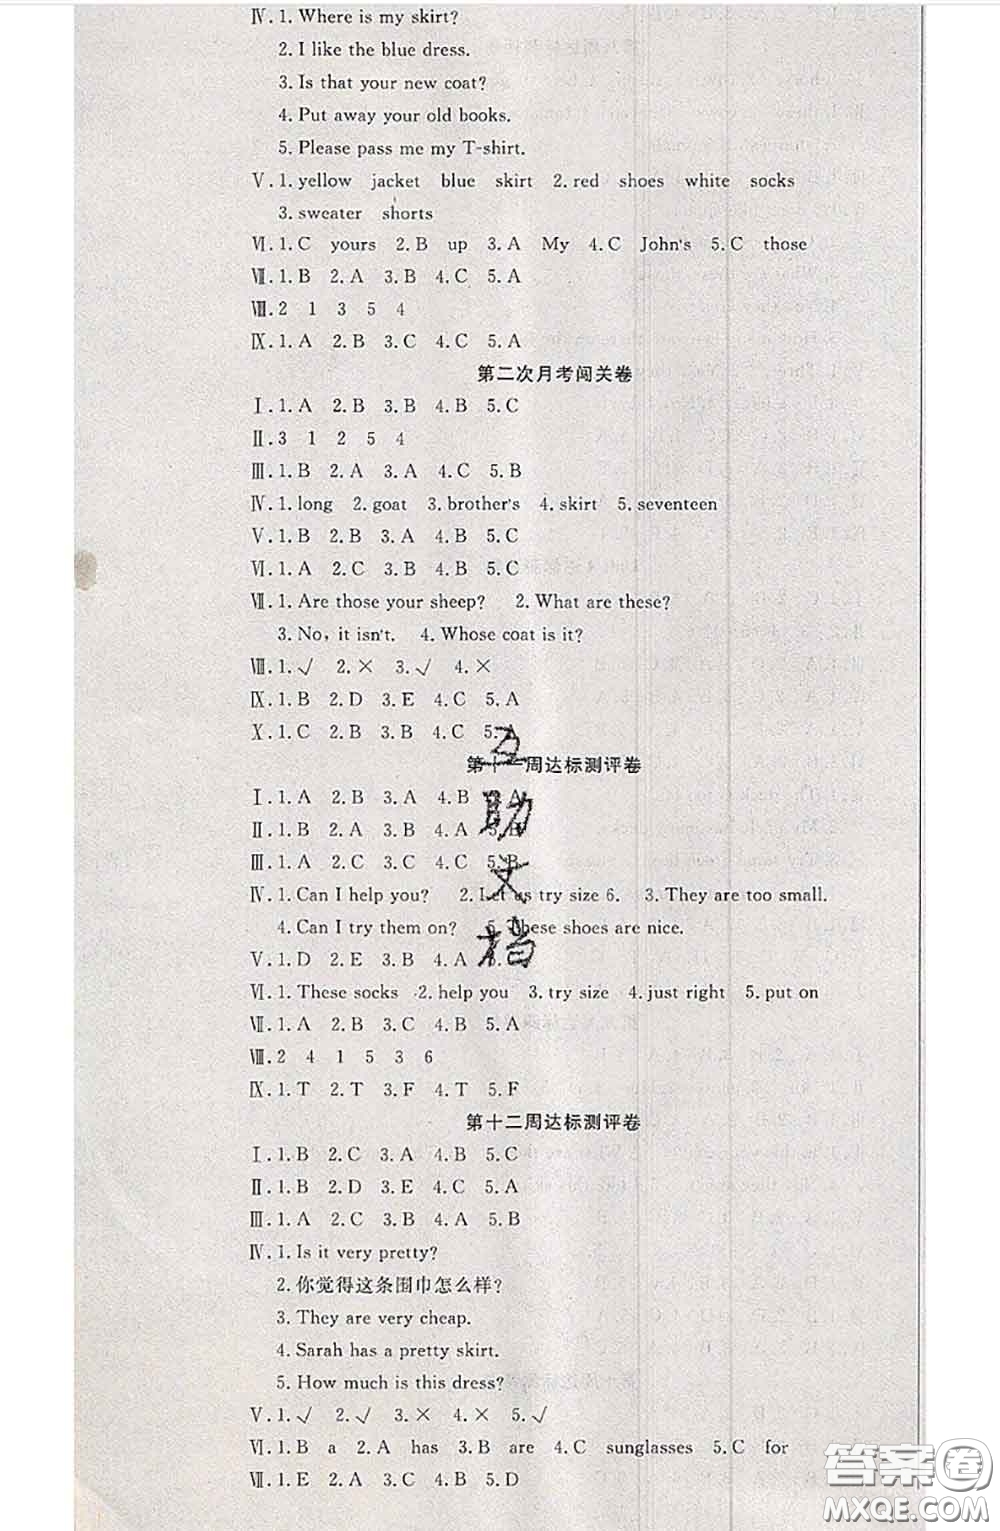 Ⅳ. 1. Where is my skirt?
2. I like the blue dress.
3. Is that your new coat?
4. Put away your old books.
5. Please pass me my T-shirt.
Ⅴ. 1. yellow jacket blue skirt 2. red shoes white socks
3. sweater shorts
Ⅵ. 1. C yours 2. B up 3. A My 4. C John's 5. C those
Ⅶ. 1. B 2. A 3. B 4. C 5. A
Ⅷ. 2 1 3 5 4
Ⅸ. 1. A 2. B 3. C 4. C 5. A
第二次月考闯关卷
Ⅰ. 1. A 2. B 3. B 4. B 5. C
Ⅱ. 3 1 2 5 4
Ⅲ. 1. B 2. A 3. A 4. C 5. B
Ⅳ. 1. long 2. goat 3. brother's 4. skirt 5. seventeen
Ⅴ. 1. B 2. B 3. A 4. B 5. C
Ⅵ. 1. A 2. C 3. B 4. B 5. C
Ⅶ. 1. Are those your sheep? 2. What are these?
3. No, it isn't. 4. Whose coat is it?
Ⅷ. 1. √ 2. × 3. √ 4. ×
Ⅸ. 1. B 2. D 3. E 4. C 5. A
Ⅹ. 1. C 2. B 3. B 4. C 5. A
第十一周达标测评卷
Ⅰ. 1. A 2. B 3. A 4. B 5. A
Ⅱ. 1. A 2. B 3. B 4. A 5. B
Ⅲ. 1. A 2. C 3. A 4. C 5. B
Ⅳ. 1. Can I help you? 2. Let us try size 6. 3. They are too small.
4. Can I try them on? 5. These shoes are nice.
Ⅴ. 1. D 2. E 3. B 4. A 5.
Ⅵ. 1. These socks 2. help you 3. try size 4. just right 5. put on
Ⅶ. 1. A 2. B 3. C 4. B 5. A
Ⅷ. 2 4 1 5 3 6
Ⅸ. 1. T 2. T 3. F 4. T 5. F
第十二周达标测评卷
Ⅰ. 1. B 2. C 3. A 4. B 5. C
Ⅱ. 1. B 2. D 3. E 4. C 5. A
Ⅲ. 1. A 2. C 3. B 4. A 5. B
Ⅳ. 1. Is it very pretty?
2. 你觉得这条围巾怎么样?
3. They are very cheap.
4. Sarah has a pretty skirt.
5. How much is this dress?
Ⅴ. 1. √ 2. √ 3. × 4. × 5. √
Ⅵ. 1. B a 2. A has 3. B are 4. C sunglasses 5. C for
Ⅶ. 1. E 2. A 3. C 4. B 5. D
互助文档
答案圈
MXQE.COM